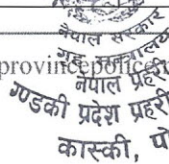 नेपाल सरकार
गृह मन्त्रालय
provincepolice
नेपाल प्रहरी
गण्डकी प्रदेश प्रहरी
कास्की, पो